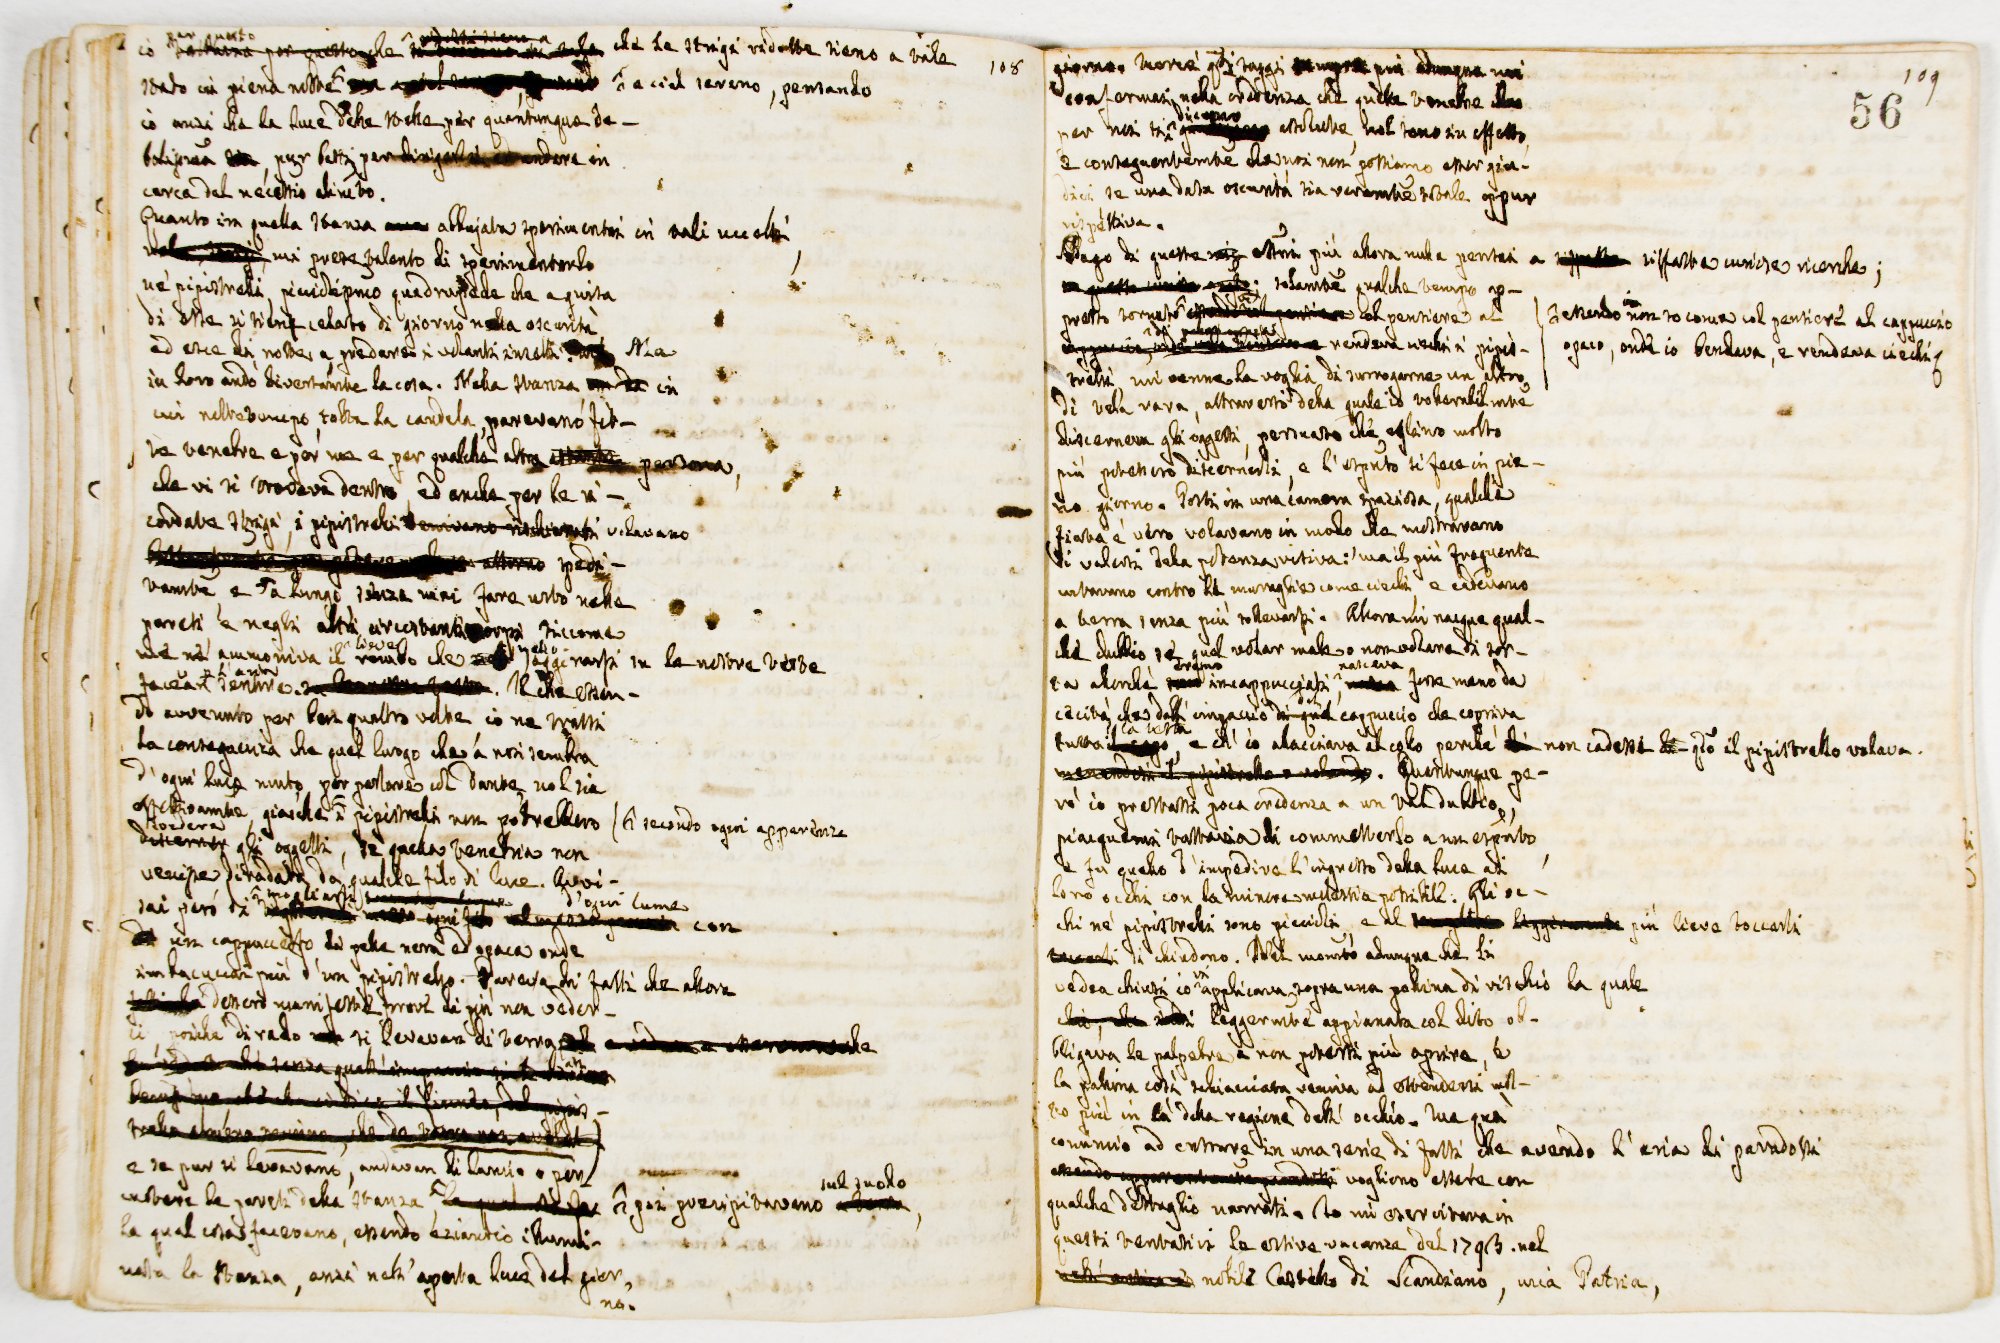 108
che le strigi ridotte sieno a tale
stato in piena notte e a ciel sereno, pensando
io anzi che la luce delle stelle per quantunque de-
bolissima pur basti per dirigersi ed andare in
cerca del necessio alimto.
Quanto in quella stanza abbujata sperimentai in tali uccelli,
mi prese talento di sperimentarlo
ne' pipistrelli, picciol quadrupede che a guisa
di esse si tiene celato di giorno nella oscurità
ed esce di notte a predare i volanti insetti. Ma
in loro andò diversamte la cosa. Nella stanza in
cui nel tempo, tolta la candela, parevano fit-
te tenebre e per me e per qualche altra persona,
che vi si trovava dentro, ed anche per le ri-
cordate strigi, i pipistrelli volavano
spedi-
tamte e a lungo senza mai fare urto nelle
pareti e negli altri circostanti corpi siccome
me ne ammoniva il lieve rombo che nello aggirarsi su le nostre teste
facean sentire. Il che essen-
do avvenuto per ben quattro volte io ne trassi
la conseguenza che quel luogo che a noi sembra
d'ogni luce muto, per parlare col Dante, nol sia
effettivamte, giacchè i pipistrelli non potrebbero
secondo ogni apparenza
vedere gli oggetti, se quella tenebria non
venisse diradata da qualche filo di luce. Avvi-
sai però di spogliarli d'ogni lume con
un cappuccetto di pelle nera ed opaca onde
imbacuccai più d'un pipistrello. Pareva di fatti che allora
dessero manifeste prove di più non veder-
ci, poichè di rado si levavan di terra
e se pur si levavano, andavan di lancio a per-
cuotere le pareti della stanza e poi precipitavano sul suolo,
la qual cosa facevano, essendo eziandio illumi-
nata la stanza, anzi nell'aperta luce del gior-
no.
109
56
giorno. Mercè gli saggi più adunque mi
confermai nella credenza che quelle tenebre che
per noi si dicono assolute, nol sono in effetto,
e conseguentemte che noi non possiamo esser giu-
dici se una data oscurità sia veramte totale oppur
rispettiva.
Pago di queste più allora nulla pensai a siffatte curiose ricerche;
solamte qualche tempo ap-
presso tornato col pensiere al
essendo io tornato come col pensiere al cappuccio
opaco, onde io bendava, e rendeva ciechi
rendeva ciechi i pipis-
trelli mi venne la voglia di surrogarne un altro
di tela rara, attraverso della quale io tollerabilmte
discerneva gli oggetti, persuaso che eglino molto
più potessero discernerli, e l'esprito si fece in pie-
no giorno. Posti in una camera spaziosa, qualche
fiata è vero volavano in modo che mostravano
di valersi della potenza visiva: ma il più frequente
urtavano contro le muraglie come ciechi, e cadevano
a terra senza più sollevarsi. Allora mi nacque qual-
che dubbio se quel volar male o non volare di sor-
ta allorchè eramo incappucciati, nasceva forse meno da
cecità, che dall'impaccio di quel cappuccio che copriva
tutta la testa, e ch'io allacciava al collo perchè non cadesse quo il pipistrello volava.
Quantunque pe-
rò io prestassi poca credenza a un tal dubbio,
piacquemi tuttavia di commetterlo a un esprito,
e fu quello d'impedire l'ingresso della luce ai
loro occhi con la minore molestia possibile. Gli oc-
chi ne' pipistrelli sono piccioli, e al più lieve toccarli
si chiudono. Nel momto adunque che li
vedea chiusi io vi applicava sopra una pallina di vischio la quale
leggermte appianata col dito ob-
bligava le palpebre a non potersi più aprire, e
la pallina così schiacciata veniva ad estendersi mol-
to più in là della regione dell'occhio. Ma qua
comincio ad entrare in una serie di fatti che avendo l'aria di paradossi
vogliono essere con
qualche dettaglio narrati. Io mi esercitava in
questi tentativi le estive vacanze del 1793. nel
nobile Castello di Scandiano, mia Patria,